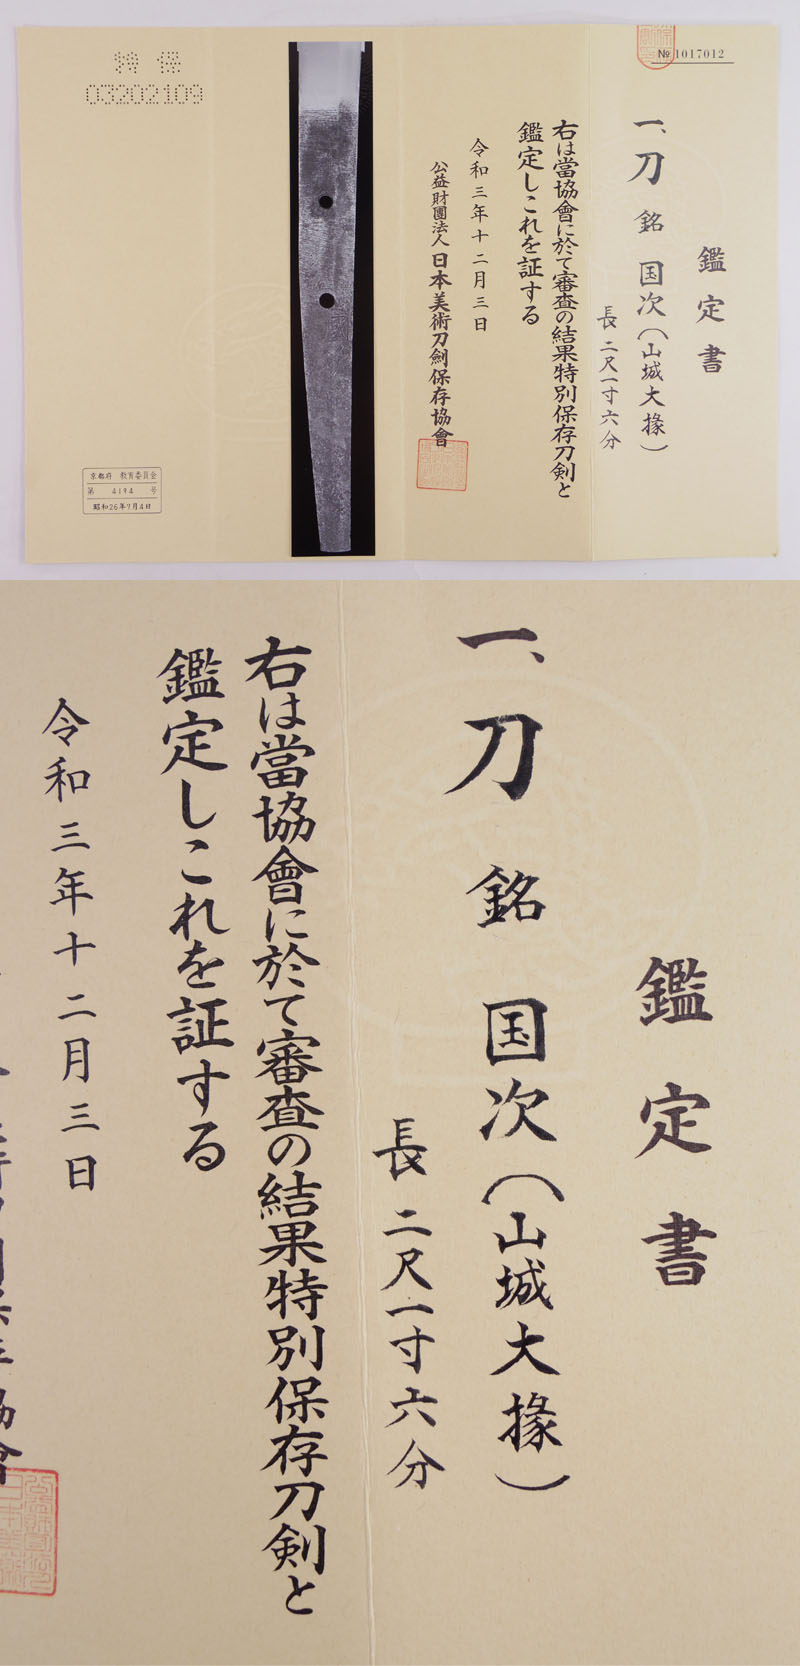 鑑定書
一、刀 銘 国次(山城大掾)
長 二尺一寸六分
右は當協會に於て審査の結果特別保存刀剣と
鑑定しこれを証する
令和三年十二月三日
公益財團法人 日本美術刀劍保存協會
№ 1017012
特 保
03202109
京都府 教育委員会
第 4194 号
昭和26年7月4日
鑑定書
一、刀 銘 国次(山城大掾)
長 二尺一寸六分
右は當協會に於て審査の結果特別保存刀剣と
鑑定しこれを証する
令和三年十二月三日